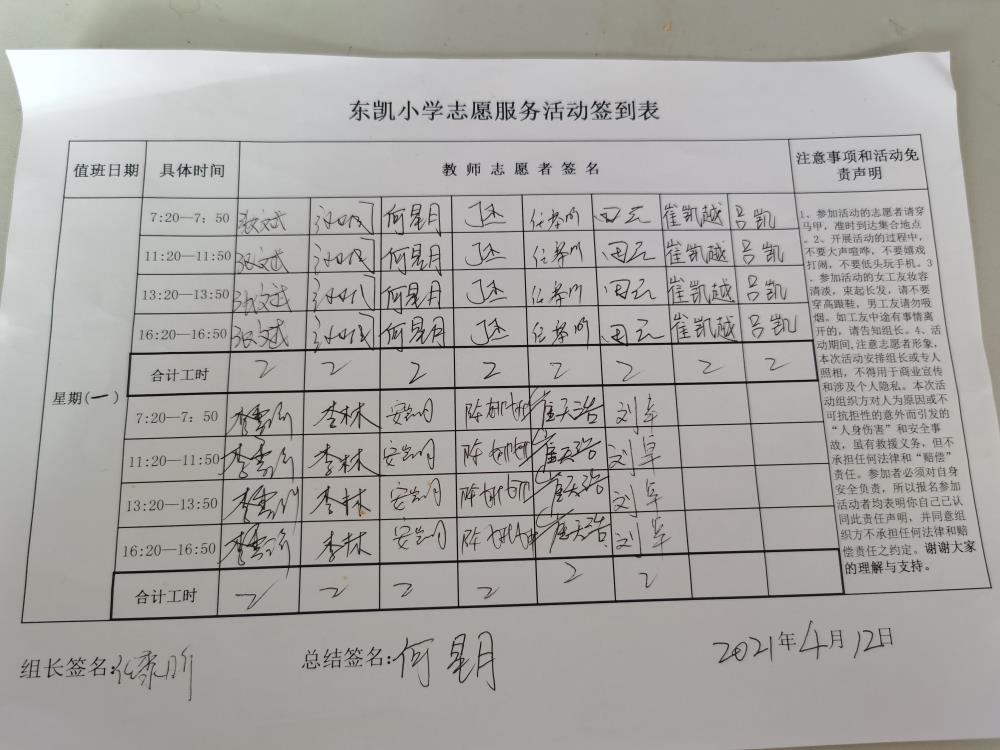 东凯小学志愿服务活动签到表
值班日期 具体时间 教师志愿者签名 注意事项和活动免
责声明
7:20—7：50 张文斌 何星月 田云 崔凯越 吕凯
11:20—11:50 张文斌 何星月 田云 崔凯越 吕凯
13:20—13:50 张文斌 何星月 田云 崔凯越 吕凯
16:20—16:50 张文斌 何星月 田云 崔凯越 吕凯
合计工时 2 2 2 2 2 2 2 2
星期(一)
7:20—7：50 李林 刘卓
11:20—11:50 李林 刘卓
13:20—13:50 李林 刘卓
16:20—16:50 李林 刘卓
合计工时 2 2 2 2 2 2
1、参加活动的志愿者请穿
马甲，准时到达集合地点
。2、开展活动的过程中，
不要大声喧哗，不要嬉戏
打闹，不要低头玩手机。3
、参加活动的女工友妆容
清淡，束起长发，请不要
穿高跟鞋，男工友请勿吸
烟。如工友中途有事情离
开的，请告知组长。4、活
动期间,注意志愿者形象，
本次活动安排组长或专人
照相，不得用于商业宣传
和涉及个人隐私。本次活
动组织方对人为原因或不
可抗拒性的意外而引发的
“人身伤害”和安全事
故，虽有救援义务，但不
承担任何法律和“赔偿”
责任。参加者必须对自身
安全负责，所以报名参加
活动者均表明你自己已认
同此责任声明，并同意组
织方不承担任何法律和赔
偿责任之约定。谢谢大家
的理解与支持。
组长签名: 总结签名:何星月 2021年4月12日